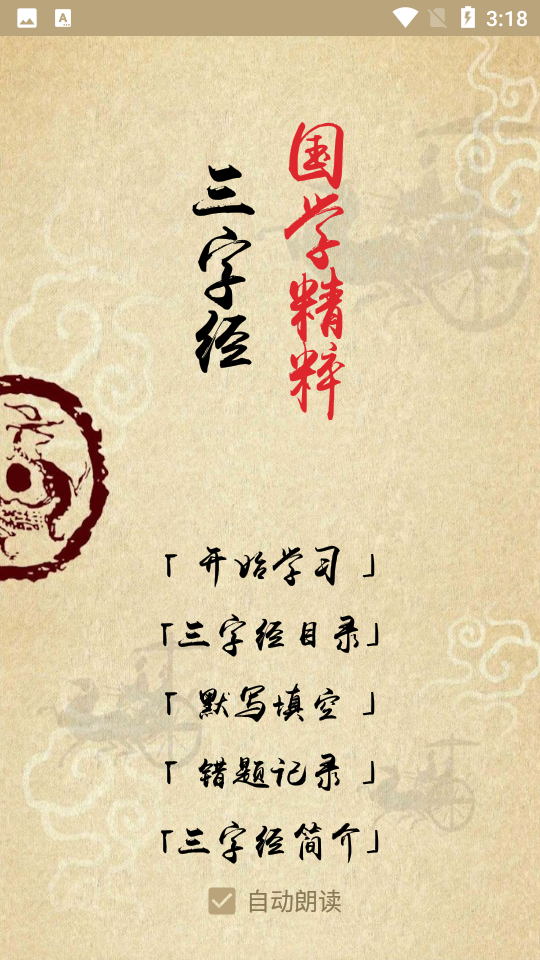 3:18
国学精粹
三字经
「 开始学习 」
「三字经目录」
「 默写填空 」
「 错题记录 」
「三字经简介」
自动朗读